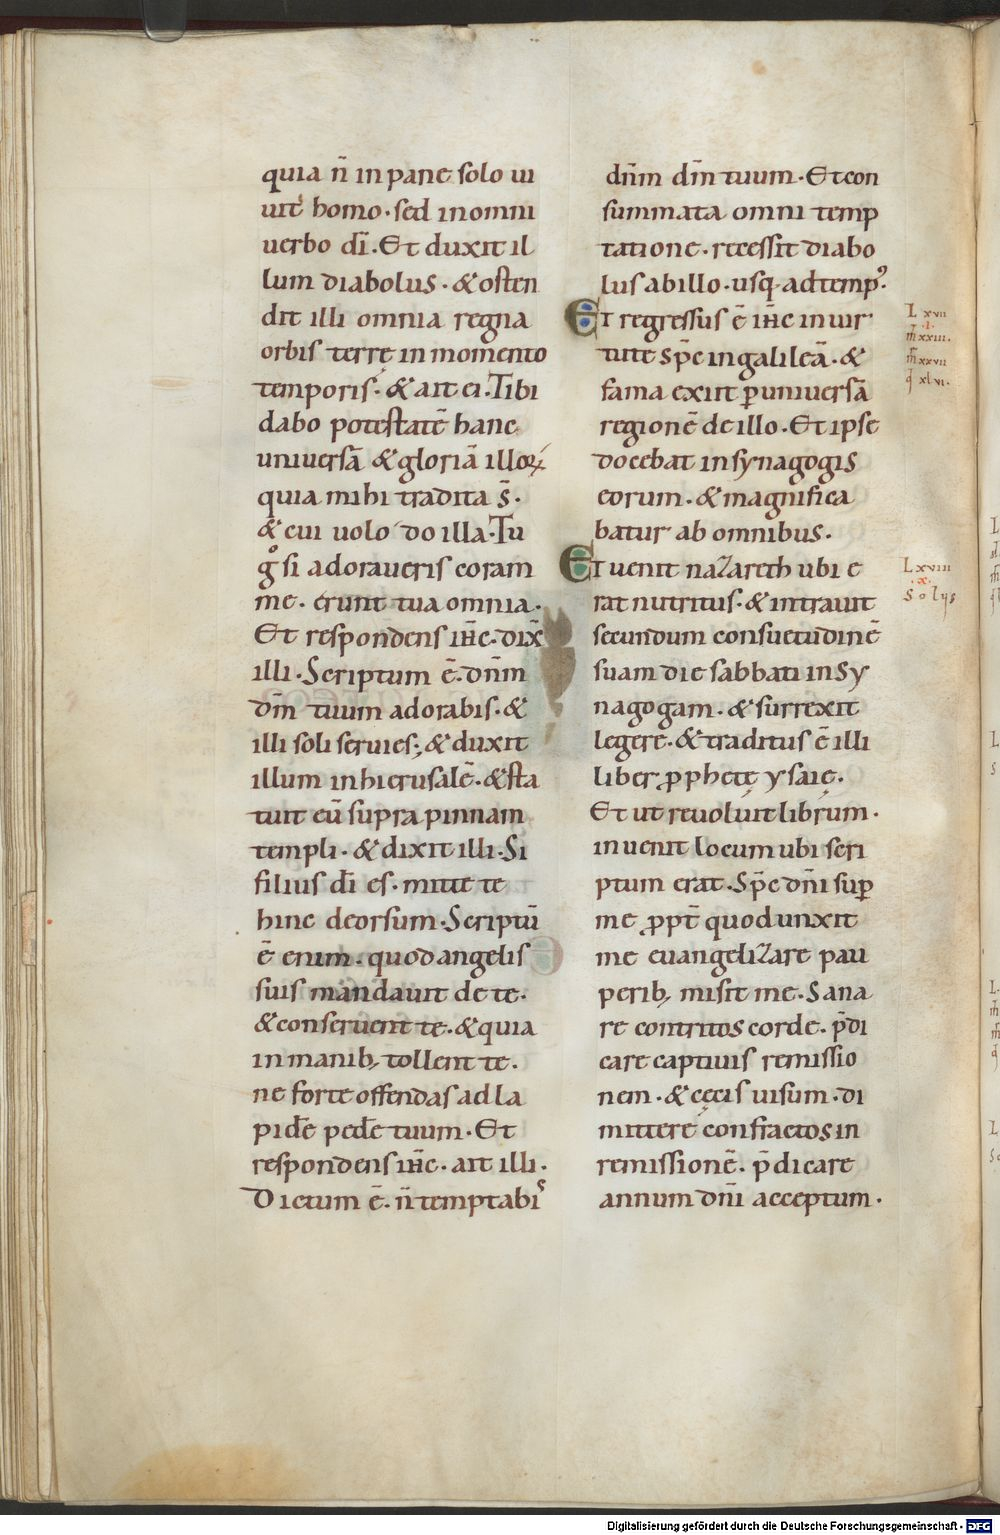 quia n̄ in pane solo ui
uit homo · sed in omni
uerbo dī. Et duxit il
lum diabolus · & osten
dit illi omnia regna
orbis terrę in momento
temporis · & ait ei · Tibi
dabo potestatē hanc
uniuersā & gloriā illoꝝ
quia mihi tradita s̄ ·
& cui uolo do illa · Tu
gͦ si adoraueris coram
me · erunt tua omnia ·
Et respondens ihc · dix̄
illi · Scriptum ē · dn̄m
dm̄ tuum adorabis · &
illi soli seruies; & duxit
illum in hierusalē · & sta
tuit eū supra pinnam
templi · & dixit illi · Si
filius dī es · mitte te
hinc deorsum · Scriptū
ē enim · quod angelis
suis mandauit de te ·
& conseruent te · & quia
in manib; tollent te ·
ne forte offendas ad la
pidē pedē tuum · Et
respondens ihc · ait illi ·
Dictum ē · n̄ temptabis
dn̄m dm̄ tuum · Et con
summata omni temp
tatione · recessit diabo
lus ab illo · usq; ad temp᾽ ·
Et regressus ē ihc in uir
tute spc in galileā · &
fama exiit ꝑ uniuersā
regionē de illo · Et ipse
docebat in synagogis
eorum · & magnifica
batur ab omnibus ·
Et uenit nazareth ubi e
rat nutritus · & intrauit
secundum consuetudinē
suam die sabbati in sy
nagogam · & surrexit
legere · & traditus ē illi
liber ꝓphetę ysaię ·
Et ut reuoluit librum ·
inuenit locum ubi scri
ptum erat · Spc dn̄i suꝑ
me ꝓpt̄ quod unxit
me euangelizare pau
perib; misit me · Sana
re contritos corde · p̄di
care captiuis remissio
nem · & cęcis uisum · di
mittere confractos in
remissionē · p̄dicare
annum dn̄i acceptum ·
Lxvii
·i·
m̄ xxiii.
m̄ xxvii
i xlvi.
Lxviii
·x·
Solus
Digitalisierung gefördert durch die Deutsche Forschungsgemeinschaft - DFG